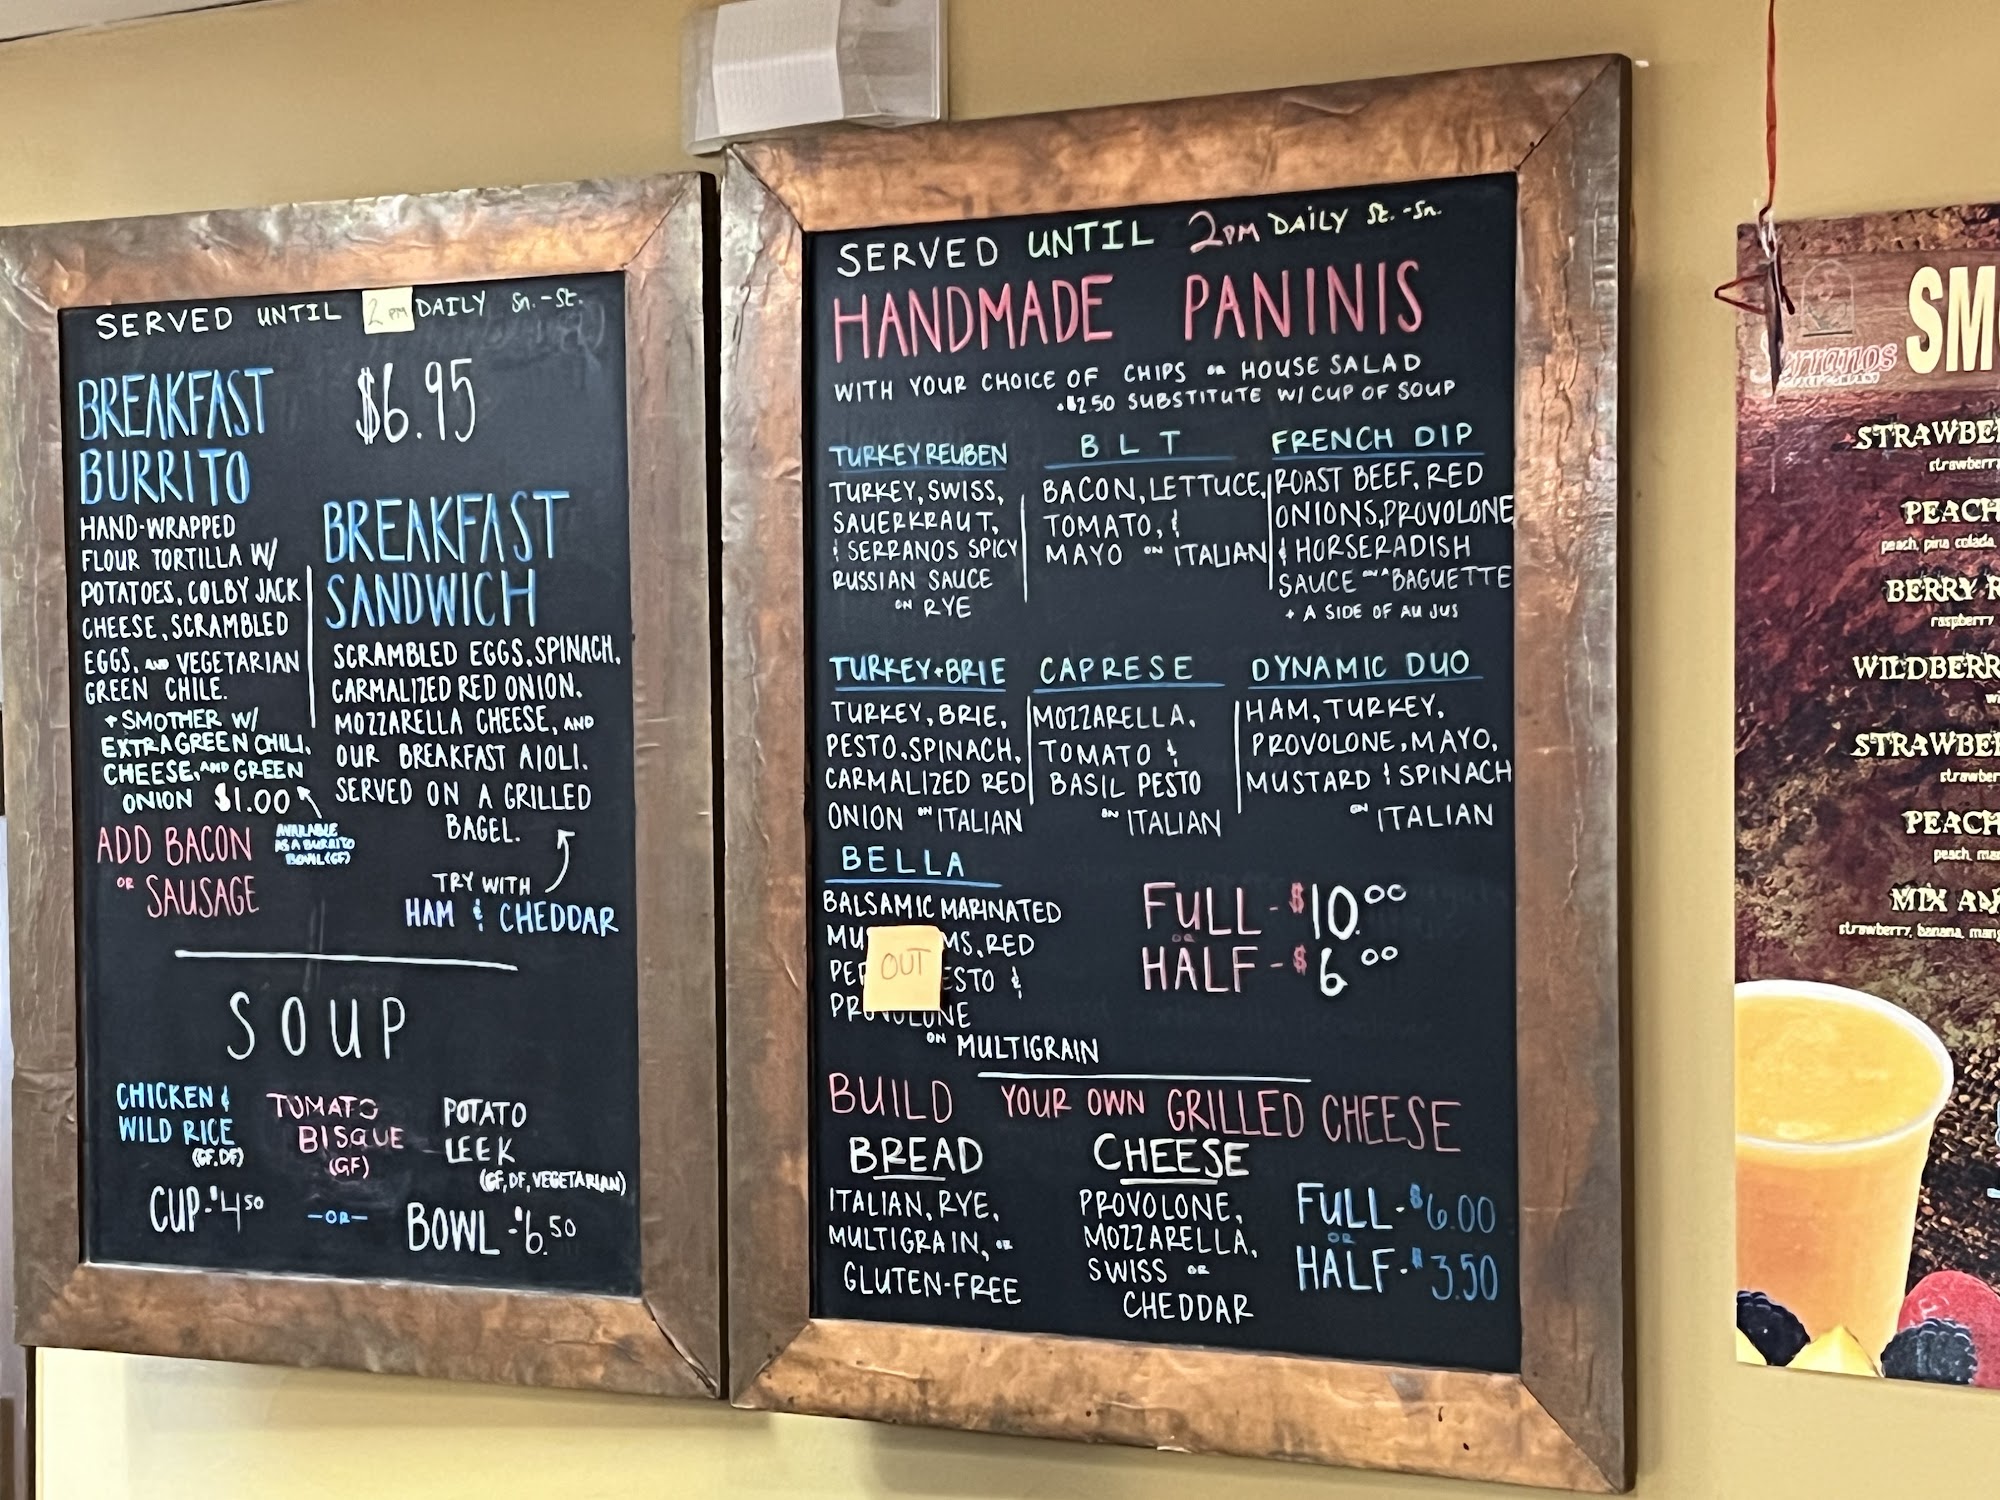 SERVED UNTIL 2PM DAILY Sn.-St.
BREAKFAST BURRITO
$6.95
HAND-WRAPPED
FLOUR TORTILLA W/
POTATOES, COLBY JACK
CHEESE, SCRAMBLED
EGGS, AND VEGETARIAN
GREEN CHILE.
+ SMOTHER W/
EXTRA GREEN CHILI,
CHEESE, AND GREEN
ONION $1.00
AVAILABLE
AS A BURRITO
BOWL (GF)
ADD BACON
OR SAUSAGE
BREAKFAST
SANDWICH
SCRAMBLED EGGS, SPINACH,
CARMALIZED RED ONION,
MOZZARELLA CHEESE, AND
OUR BREAKFAST AIOLI.
SERVED ON A GRILLED
BAGEL.
TRY WITH
HAM & CHEDDAR
SOUP
CHICKEN &
WILD RICE
(GF, DF)
TOMATO
BISQUE
(GF)
POTATO
LEEK
(GF, DF, VEGETARIAN)
CUP - $4.50
-OR-
BOWL - $6.50
SERVED UNTIL 2PM DAILY St.-Sn.
HANDMADE PANINIS
WITH YOUR CHOICE OF CHIPS OR HOUSE SALAD
+$2.50 SUBSTITUTE W/ CUP OF SOUP
TURKEY REUBEN
TURKEY, SWISS,
SAUERKRAUT,
& SERRANOS SPICY
RUSSIAN SAUCE
ON RYE
BLT
BACON, LETTUCE,
TOMATO, &
MAYO ON ITALIAN
FRENCH DIP
ROAST BEEF, RED
ONIONS, PROVOLONE
& HORSERADISH
SAUCE ON A BAGUETTE
+ A SIDE OF AU JUS
TURKEY+BRIE
TURKEY, BRIE,
PESTO, SPINACH,
CARMALIZED RED
ONION ON ITALIAN
CAPRESE
MOZZARELLA,
TOMATO &
BASIL PESTO
ON ITALIAN
DYNAMIC DUO
HAM, TURKEY,
PROVOLONE, MAYO,
MUSTARD & SPINACH
ON ITALIAN
BELLA
BALSAMIC MARINATED
MU MS, RED
PE ESTO &
PROVOLONE
ON MULTIGRAIN
OUT
FULL - $10.00
OR
HALF - $6.00
BUILD YOUR OWN GRILLED CHEESE
BREAD
ITALIAN, RYE,
MULTIGRAIN, OR
GLUTEN-FREE
CHEESE
PROVOLONE,
MOZZARELLA,
SWISS OR
CHEDDAR
FULL - $6.00
OR
HALF - $3.50
SM
STRAWBE
strawberry
PEACH
peach, pina colada,
BERRY R
raspberry
WILDBERR
wi
STRAWBE
strawber
PEACH
peach, ma
MIX AN
strawberry, banana, mang